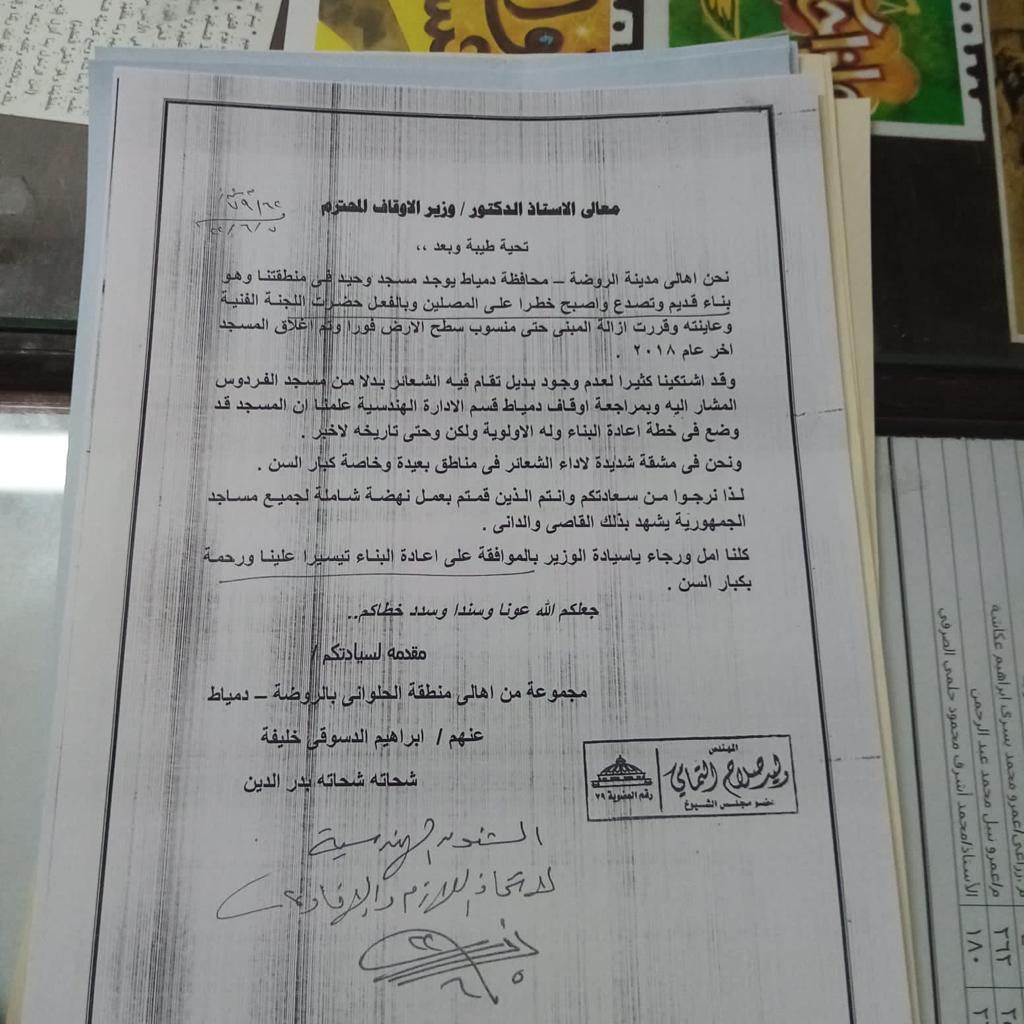 معالى الاستاذ الدكتور / وزير الاوقاف المحترم
تحية طيبة وبعد ،،
نحن اهالى مدينة الروضة – محافظة دمياط يوجد مسجد وحيد فى منطقتنا وهو
بناء قديم وتصدع واصبح خطرا على المصلين وبالفعل حضرت اللجنة الفنية
وعاينته وقررت ازالة المبنى حتى منسوب سطح الارض فورا وتم اغلاق المسجد
اخر عام ٢٠١٨ .
وقد اشتكينا كثيرا لعدم وجود بديل تقام فيه الشعائر بدلا من مسجد الفردوس
المشار اليه وبمراجعة اوقاف دمياط قسم الادارة الهندسية علمنا ان المسجد قد
وضع فى خطة اعادة البناء وله الاولوية ولكن وحتى تاريخه لاخبر .
ونحن فى مشقة شديدة لاداء الشعائر فى مناطق بعيدة وخاصة كبار السن .
لذا نرجوا من سعادتكم وانتم الذين قمتم بعمل نهضة شاملة لجميع مساجد
الجمهورية يشهد بذلك القاصى والدانى .
كلنا امل ورجاء ياسيادة الوزير بالموافقة على اعادة البناء تيسيرا علينا ورحمة
بكبار السن .
جعلكم الله عونا وسندا وسدد خطاكم..
مقدمه لسيادتكم /
مجموعة من اهالى منطقة الحلوانى بالروضة – دمياط
عنهم / ابراهيم الدسوقى خليفة
شحاته شحاته بدر الدين
المهندس
وليد صلاح التمامي
عضو مجلس الشيوخ
رقم العضوية ٢٩
الشئون الهندسية
لاتخاذ اللازم والإفادة
م/عمرو نبيل محمد عبد الرحمن
٢٦٢
الأستاذ/محمد أشرف محمود حلمى الصرفى
١٨٠